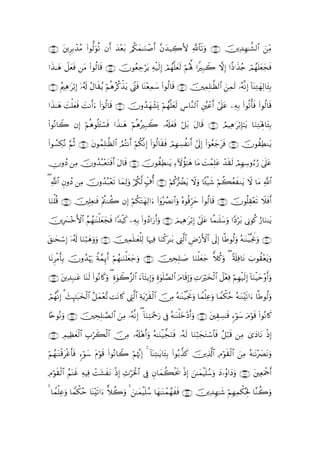 مِّنَ ٱلشَّـٰهِدِينَ ۝ وَتَٱللَّهِ لَأَكِيدَنَّ أَصْنَـٰمَكُم بَعْدَ أَن تُوَلُّوا۟ مُدْبِرِينَ ۝
فَجَعَلَهُمْ جُذَٰذًا إِلَّا كَبِيرًا لَّهُمْ لَعَلَّهُمْ إِلَيْهِ يَرْجِعُونَ ۝ قَالُوا۟ مَن فَعَلَ هَـٰذَا
بِـَٔالِهَتِنَآ إِنَّهُۥ لَمِنَ ٱلظَّـٰلِمِينَ ۝ قَالُوا۟ سَمِعْنَا فَتًى يَذْكُرُهُمْ يُقَالُ لَهُۥٓ إِبْرَٰهِيمُ ۝
قَالُوا۟ فَأْتُوا۟ بِهِۦ عَلَىٰٓ أَعْيُنِ ٱلنَّاسِ لَعَلَّهُمْ يَشْهَدُونَ ۝ قَالُوٓا۟ ءَأَنتَ فَعَلْتَ هَـٰذَا
بِـَٔالِهَتِنَا يَـٰٓإِبْرَٰهِيمُ ۝ قَالَ بَلْ فَعَلَهُۥ كَبِيرُهُمْ هَـٰذَا فَسْـَٔلُوهُمْ إِن كَانُوا۟
يَنطِقُونَ ۝ فَرَجَعُوٓا۟ إِلَىٰٓ أَنفُسِهِمْ فَقَالُوٓا۟ إِنَّكُمْ أَنتُمُ ٱلظَّـٰلِمُونَ ۝ ثُمَّ نُكِسُوا۟
عَلَىٰ رُءُوسِهِمْ لَقَدْ عَلِمْتَ مَا هَـٰٓؤُلَآءِ يَنطِقُونَ ۝ قَالَ أَفَتَعْبُدُونَ مِن دُونِ
ٱللَّهِ مَا لَا يَنفَعُكُمْ شَيْـًٔا وَلَا يَضُرُّكُمْ ۝ أُفٍّ لَّكُمْ وَلِمَا تَعْبُدُونَ مِن دُونِ ٱللَّهِ ۖ
أَفَلَا تَعْقِلُونَ ۝ قَالُوا۟ حَرِّقُوهُ وَٱنصُرُوٓا۟ ءَالِهَتَكُمْ إِن كُنتُمْ فَـٰعِلِينَ ۝ قُلْنَا
يَـٰنَارُ كُونِى بَرْدًا وَسَلَـٰمًا عَلَىٰٓ إِبْرَٰهِيمَ ۝ وَأَرَادُوا۟ بِهِۦ كَيْدًا فَجَعَلْنَـٰهُمُ ٱلْأَخْسَرِينَ
۝ وَنَجَّيْنَـٰهُ وَلُوطًا إِلَى ٱلْأَرْضِ ٱلَّتِى بَـٰرَكْنَا فِيهَا لِلْعَـٰلَمِينَ ۝ وَوَهَبْنَا لَهُۥٓ إِسْحَـٰقَ
وَيَعْقُوبَ نَافِلَةً ۖ وَكُلًّا جَعَلْنَا صَـٰلِحِينَ ۝ وَجَعَلْنَـٰهُمْ أَئِمَّةً يَهْدُونَ بِأَمْرِنَا
وَأَوْحَيْنَآ إِلَيْهِمْ فِعْلَ ٱلْخَيْرَٰتِ وَإِقَامَ ٱلصَّلَوٰةِ وَإِيتَآءَ ٱلزَّكَوٰةِ ۖ وَكَانُوا۟ لَنَا عَـٰبِدِينَ ۝
وَلُوطًا ءَاتَيْنَـٰهُ حُكْمًا وَعِلْمًا وَنَجَّيْنَـٰهُ مِنَ ٱلْقَرْيَةِ ٱلَّتِى كَانَت تَّعْمَلُ ٱلْخَبَـٰٓئِثَ ۗ إِنَّهُمْ
كَانُوا۟ قَوْمَ سَوْءٍ فَـٰسِقِينَ ۝ وَأَدْخَلْنَـٰهُ فِى رَحْمَتِنَآ ۖ إِنَّهُۥ مِنَ ٱلصَّـٰلِحِينَ ۝ وَنُوحًا
إِذْ نَادَىٰ مِن قَبْلُ فَٱسْتَجَبْنَا لَهُۥ فَنَجَّيْنَـٰهُ وَأَهْلَهُۥ مِنَ ٱلْكَرْبِ ٱلْعَظِيمِ ۝
وَنَصَرْنَـٰهُ مِنَ ٱلْقَوْمِ ٱلَّذِينَ كَذَّبُوا۟ بِـَٔايَـٰتِنَآ ۚ إِنَّهُمْ كَانُوا۟ قَوْمَ سَوْءٍ فَأَغْرَقْنَـٰهُمْ
أَجْمَعِينَ ۝ وَدَاوُۥدَ وَسُلَيْمَـٰنَ إِذْ يَحْكُمَانِ فِى ٱلْحَرْثِ إِذْ نَفَشَتْ فِيهِ غَنَمُ ٱلْقَوْمِ
وَكُنَّا لِحُكْمِهِمْ شَـٰهِدِينَ ۝ فَفَهَّمْنَـٰهَا سُلَيْمَـٰنَ ۚ وَكُلًّا ءَاتَيْنَا حُكْمًا وَعِلْمًا ۚ